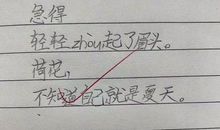 急得
轻轻zhòu起了眉头。
荷花，
不知道自己就是夏天。